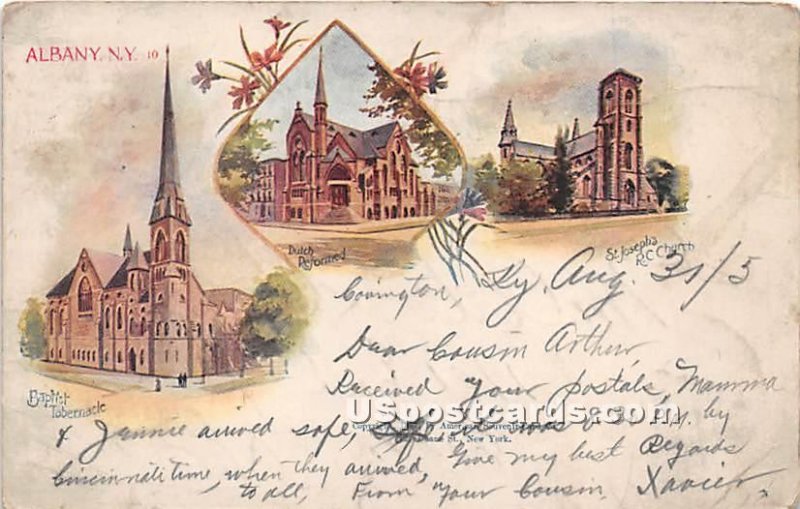 ALBANY, N.Y. 10
Dutch
Reformed
St. Joseph's
R.C. Church
Baptist
Tabernacle
Covington, Ky, Aug. 31/5
Dear Cousin Arthur,
Received your postals, Mamma
& Jennie arrived safe, was by
Cincinnati time, when they arrived, Give my best Regards
to all, From Your Cousin, Xavier
American Souvenir
St., New York.
USpostcards.com